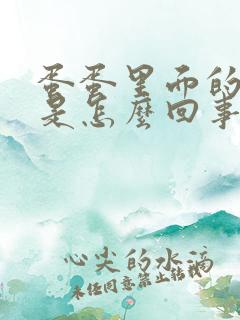 蛋蛋里面的
是怎麼回事
心尖的水滴
未经同意禁止转载